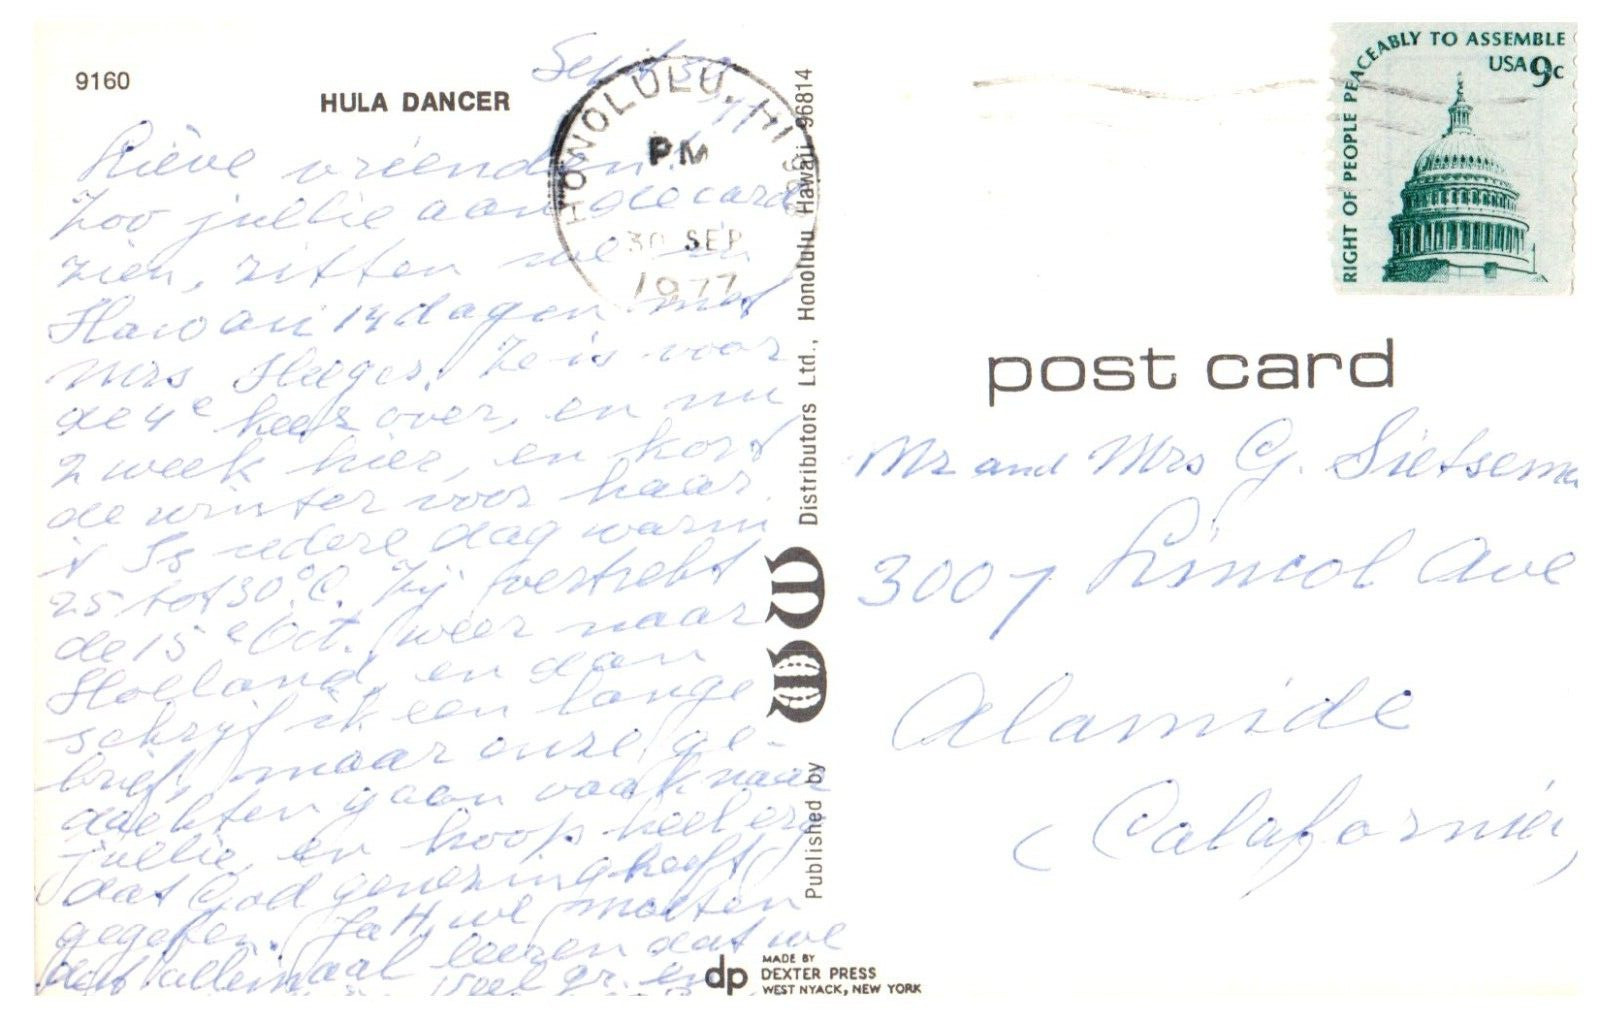 9160
HULA DANCER
Sept 30
77
Lieve vrienden.
Zoo jullie aan de card
zien, zitten we in
Hawaii 14 dagen met
Mrs
Ze is voor
de 4e keer over, en nu
2 week hier, en kort
de winter voor haar.
't Is iedere dag warm
25 tot 30°C. Zij vertrekt
de 15e Oct. weer naar
Holland, en dan
schrijf ik een lange
brief, maar onze ge-
dachten gaan vaak naar
jullie, en hoop heel erg
dat God genezing heeft
gegeven. we moeten
dat allemaal leeren dat we
veel gr. en
HONOLULU, HI
PM
30 SEP
1977
Published by Distributors Ltd., Honolulu Hawaii 96814
dp MADE BY
DEXTER PRESS
WEST NYACK, NEW YORK
RIGHT OF PEOPLE PEACEABLY TO ASSEMBLE
USA 9c
post card
Mr and Mrs G. Sietsema
3007 Lincol Ave
Alamide
(Calafornia)